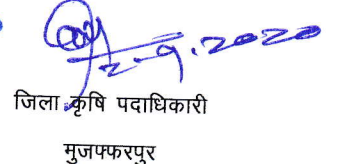 2-9.2020
जिला कृषि पदाधिकारी
मुजफ्फरपुर